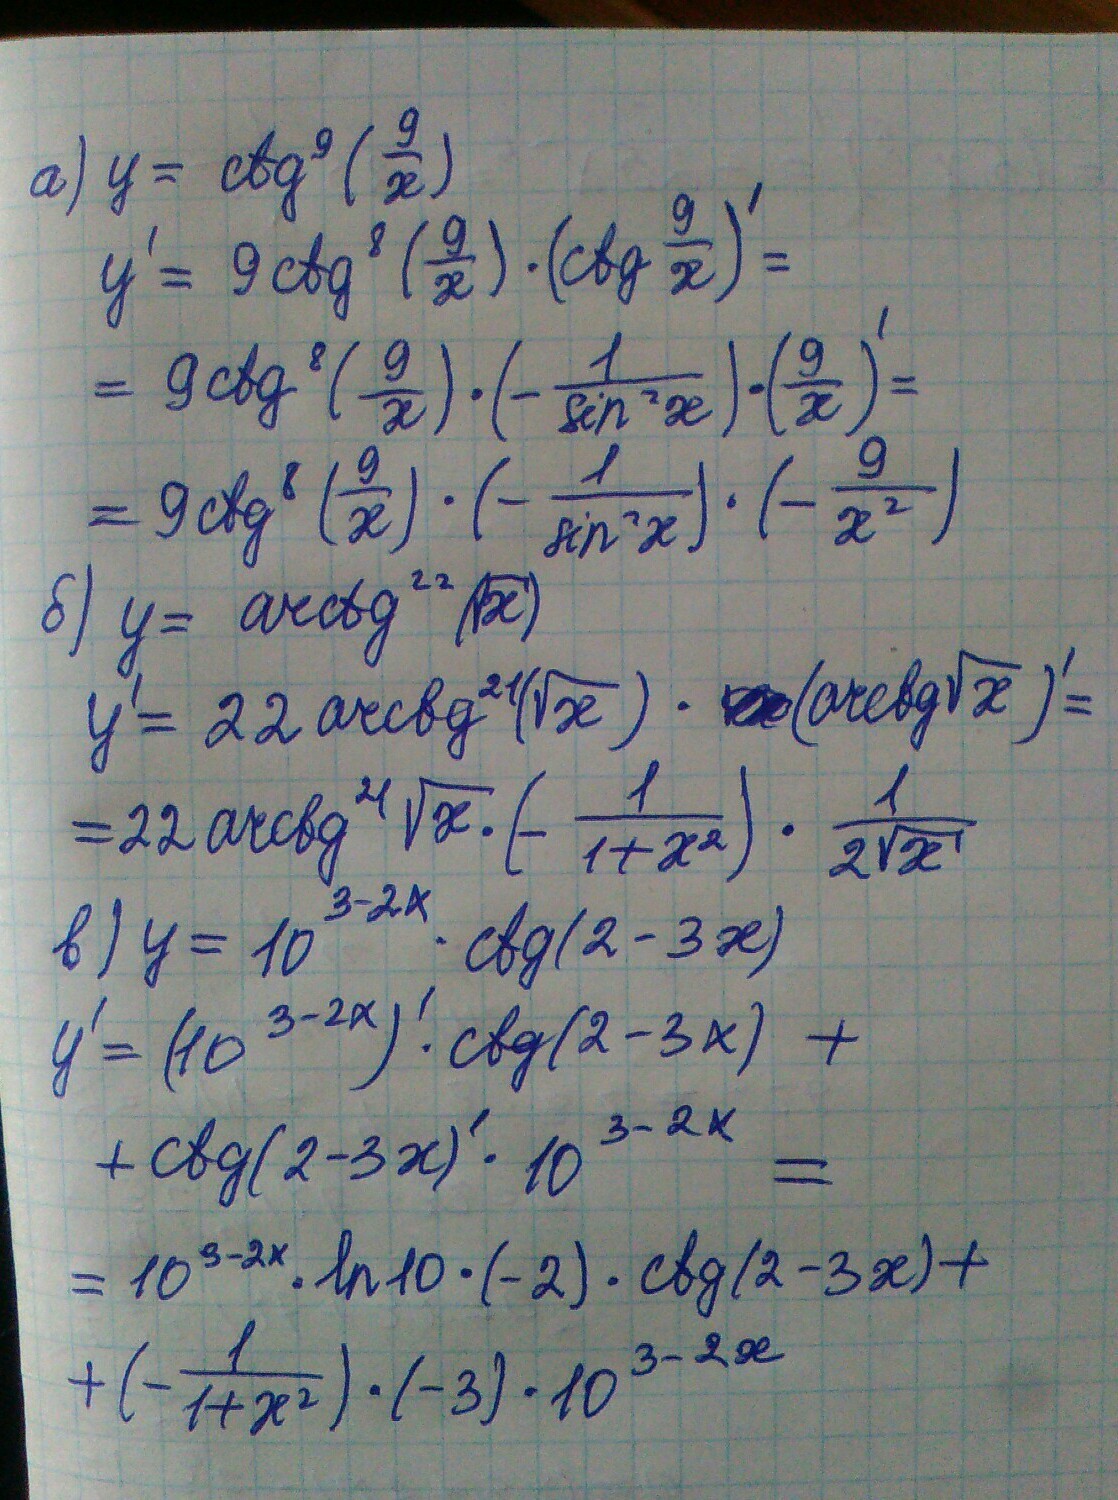 а) y = ctg⁹(9/x)
y' = 9ctg⁸(9/x)·(ctg 9/x)' =
= 9ctg⁸(9/x)·(-1/sin²x)·(9/x)' =
= 9ctg⁸(9/x)·(-1/sin²x)·(-9/x²)
б) y = arcctg²²(√x)
y' = 22arcctg²¹(√x)·(arcctg√x)' =
= 22arcctg²¹√x·(-1/(1+x²))·1/(2√x)
в) y = 10^(3-2x)·ctg(2-3x)
y' = (10^(3-2x))'·ctg(2-3x) +
+ ctg(2-3x)'·10^(3-2x) =
= 10^(3-2x)·ln10·(-2)·ctg(2-3x)+
+(-1/(1+x²))·(-3)·10^(3-2x)